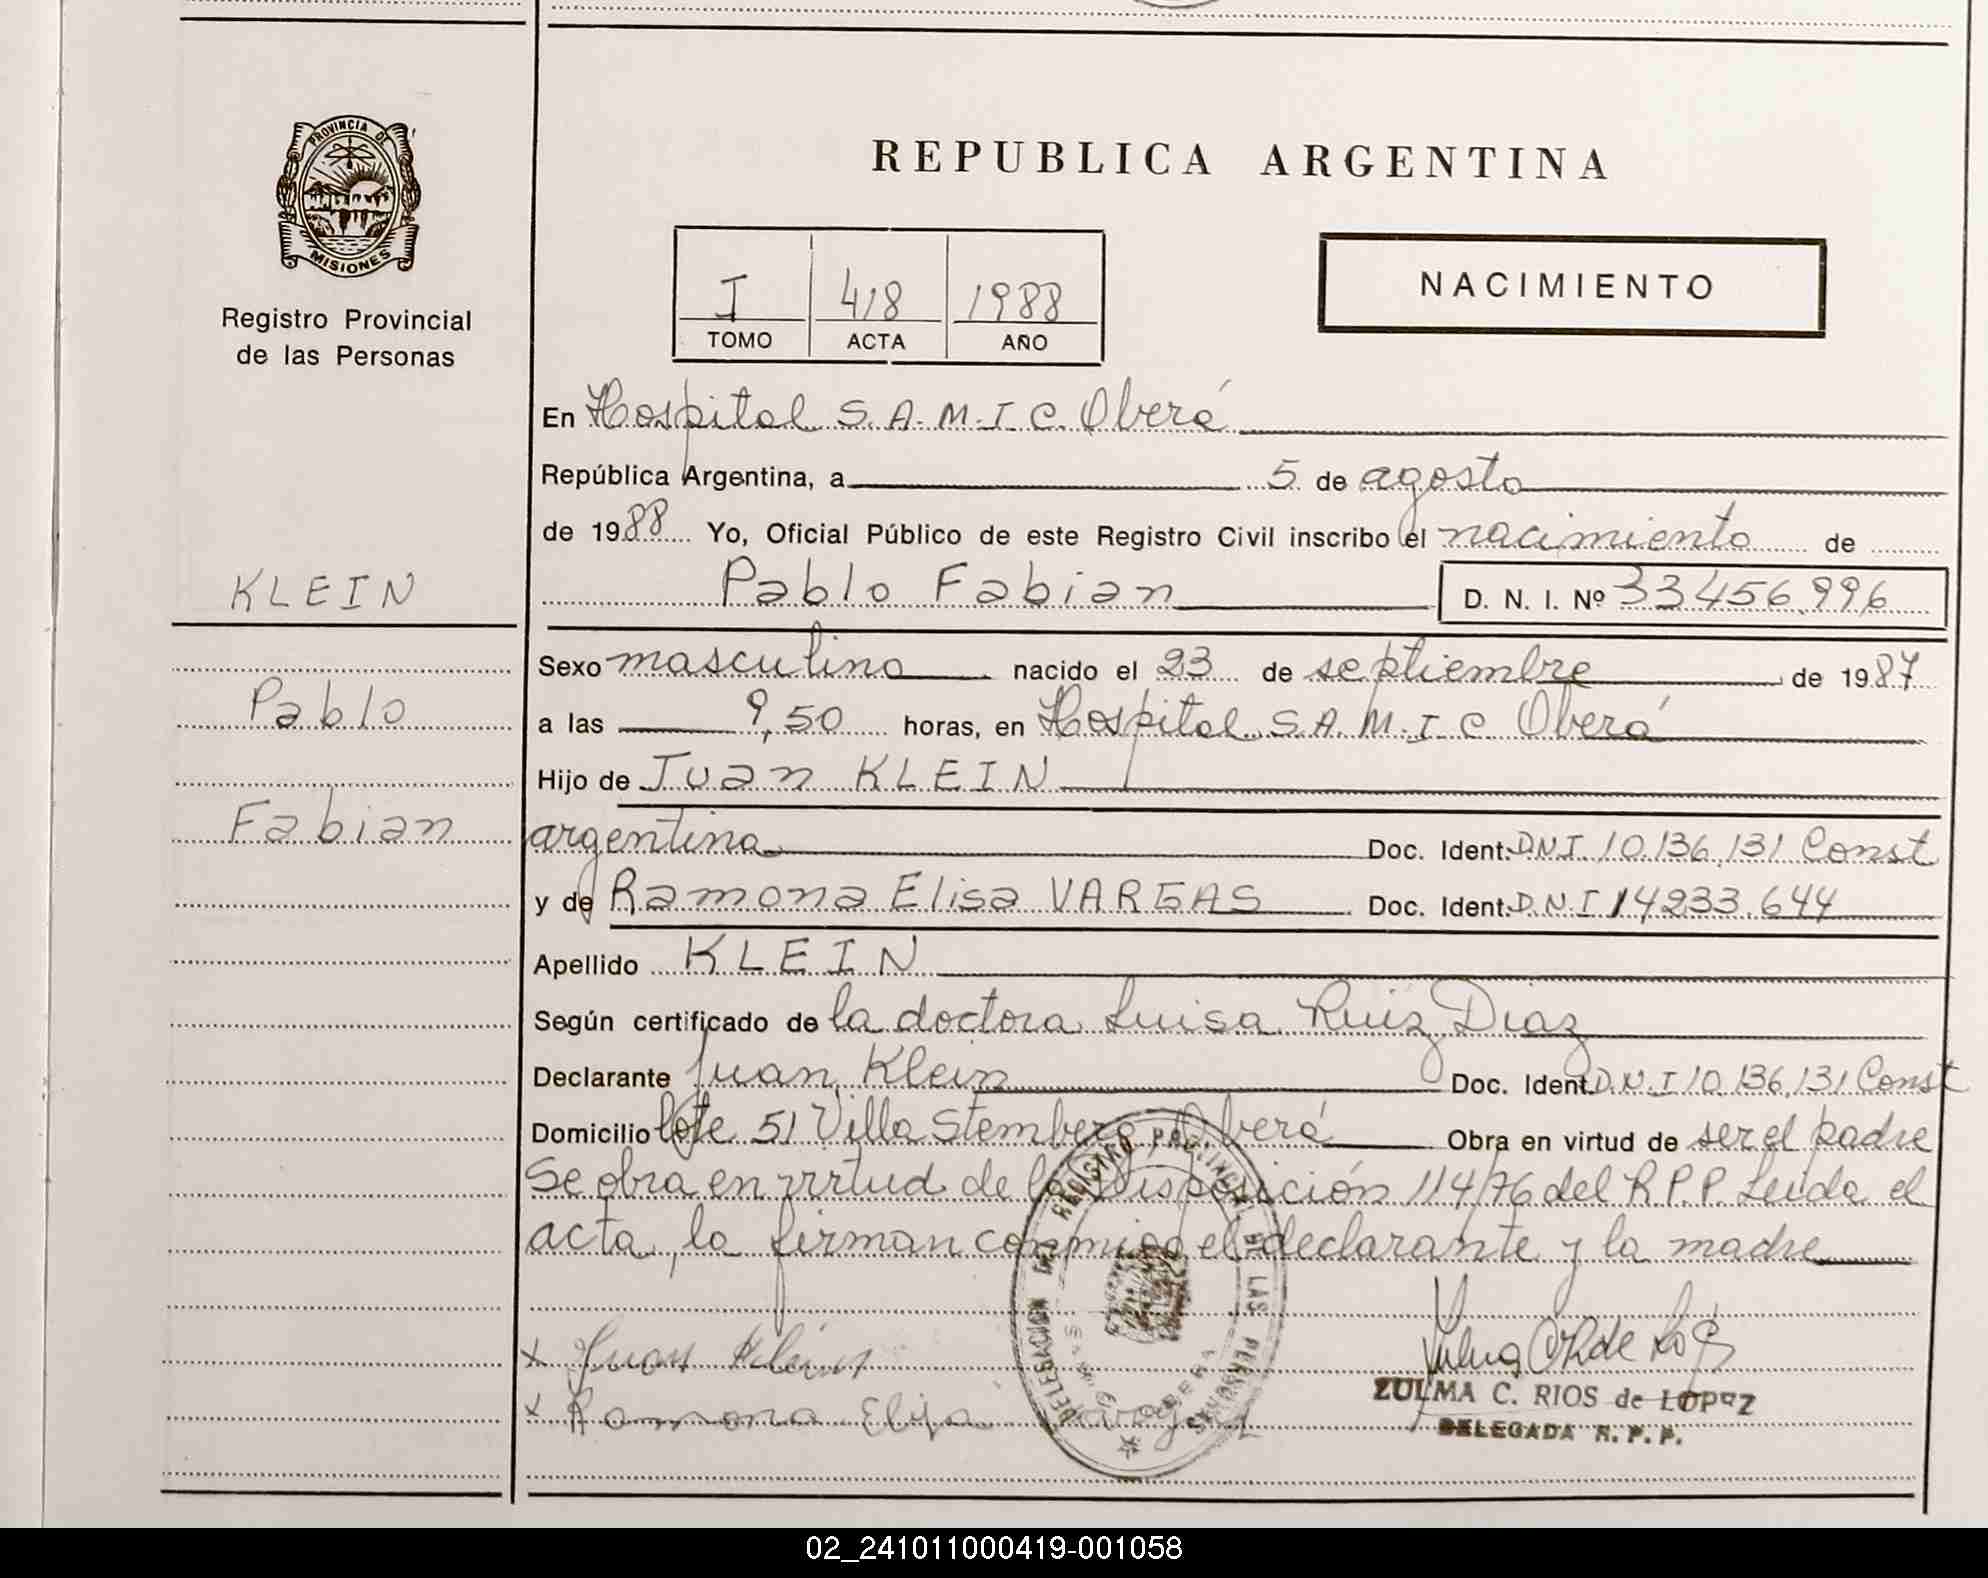 PROVINCIA DE
MISIONES
Registro Provincial
de las Personas
REPUBLICA ARGENTINA
I 418 1988
TOMO ACTA AÑO
NACIMIENTO
En Hospital S.A.M.I.C. Oberá
República Argentina, a 5 de agosto
de 1988 Yo, Oficial Público de este Registro Civil inscribo el nacimiento de
KLEIN
Pablo Fabian D. N. I. Nº 33456.996
Sexo masculino nacido el 23 de septiembre de 1987
Pablo
a las 9,50 horas, en Hospital S.A.M.I.C Oberá
Hijo de Juan KLEIN
Fabian
argentina Doc. Ident. D.N.I. 10.136.131 Const
y de Ramona Elisa VARGAS Doc. Ident. D.N.I 14233.644
Apellido KLEIN
Según certificado de la doctora Luisa Ruiz Diaz
Declarante Juan Klein Doc. Ident. D.N.I 10.136.131 Const
Domicilio lote 51 Villa Stemberg Oberá Obra en virtud de ser el padre
Se obra en virtud de la Disposición 114/76 del R.P.P. Leida el
acta, la firman conmigo el declarante y la madre
x Juan Klein
x Ramona Elisa Vargas
DELEGACION DEL REGISTRO PROVINCIAL DE LAS PERSONAS
OBERA
ZULMA C. RIOS de LOPEZ
DELEGADA R. P. P.
02_241011000419-001058